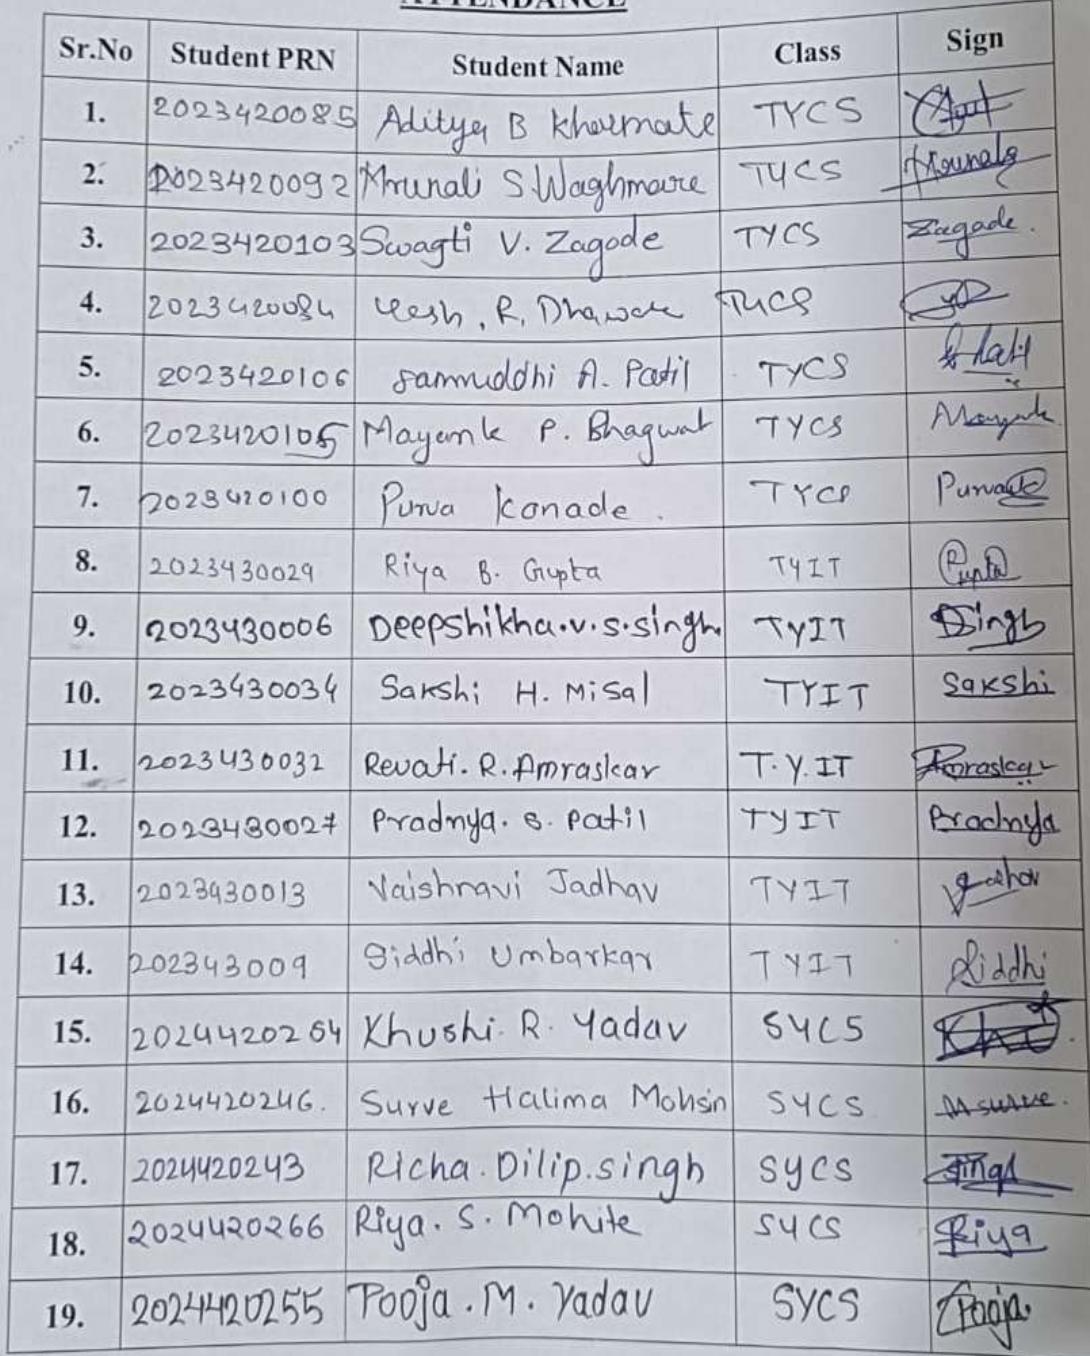 ATTENDANCE
Sr.No Student PRN Student Name Class Sign
1. 2023420085 Aditya B Kharmate TYCS
2. 2023420092 Mrunali S Waghmare TYCS Mrunali
3. 2023420103 Swagti V. Zagade TYCS Zagade.
4. 2023420084 Yesh. R. Dhaware TYCS
5. 2023420106 Sammuddhi A. Patil TYCS
6. 2023420105 Mayank P. Bhagwat TYCS Mayank
7. 2023420100 Purva Konade. TYCS Purva
8. 2023430029 Riya B. Gupta TYIT Gupta
9. 2023430006 Deepshikha.v.s.singh. TYIT DSingh
10. 2023430034 Sakshi H. Misal TYIT Sakshi
11. 2023430032 Revati. R. Amraskar T.Y.IT Amraskar
12. 2023430027 Pradnya. S. Patil TYIT Pradnya
13. 2023430013 Vaishnavi Jadhav TYIT
14. 202343009 Siddhi Umbarkar TYIT Siddhi
15. 2024420254 Khushi. R. Yadav SYCS
16. 2024420246. Surve Halima Mohsin SYCS
17. 2024420243 Richa.Dilip.singh SYCS Singh
18. 2024420266 Riya. S. Mohite SYCS Riya
19. 2024420255 Pooja.M. Yadav SYCS Pooja